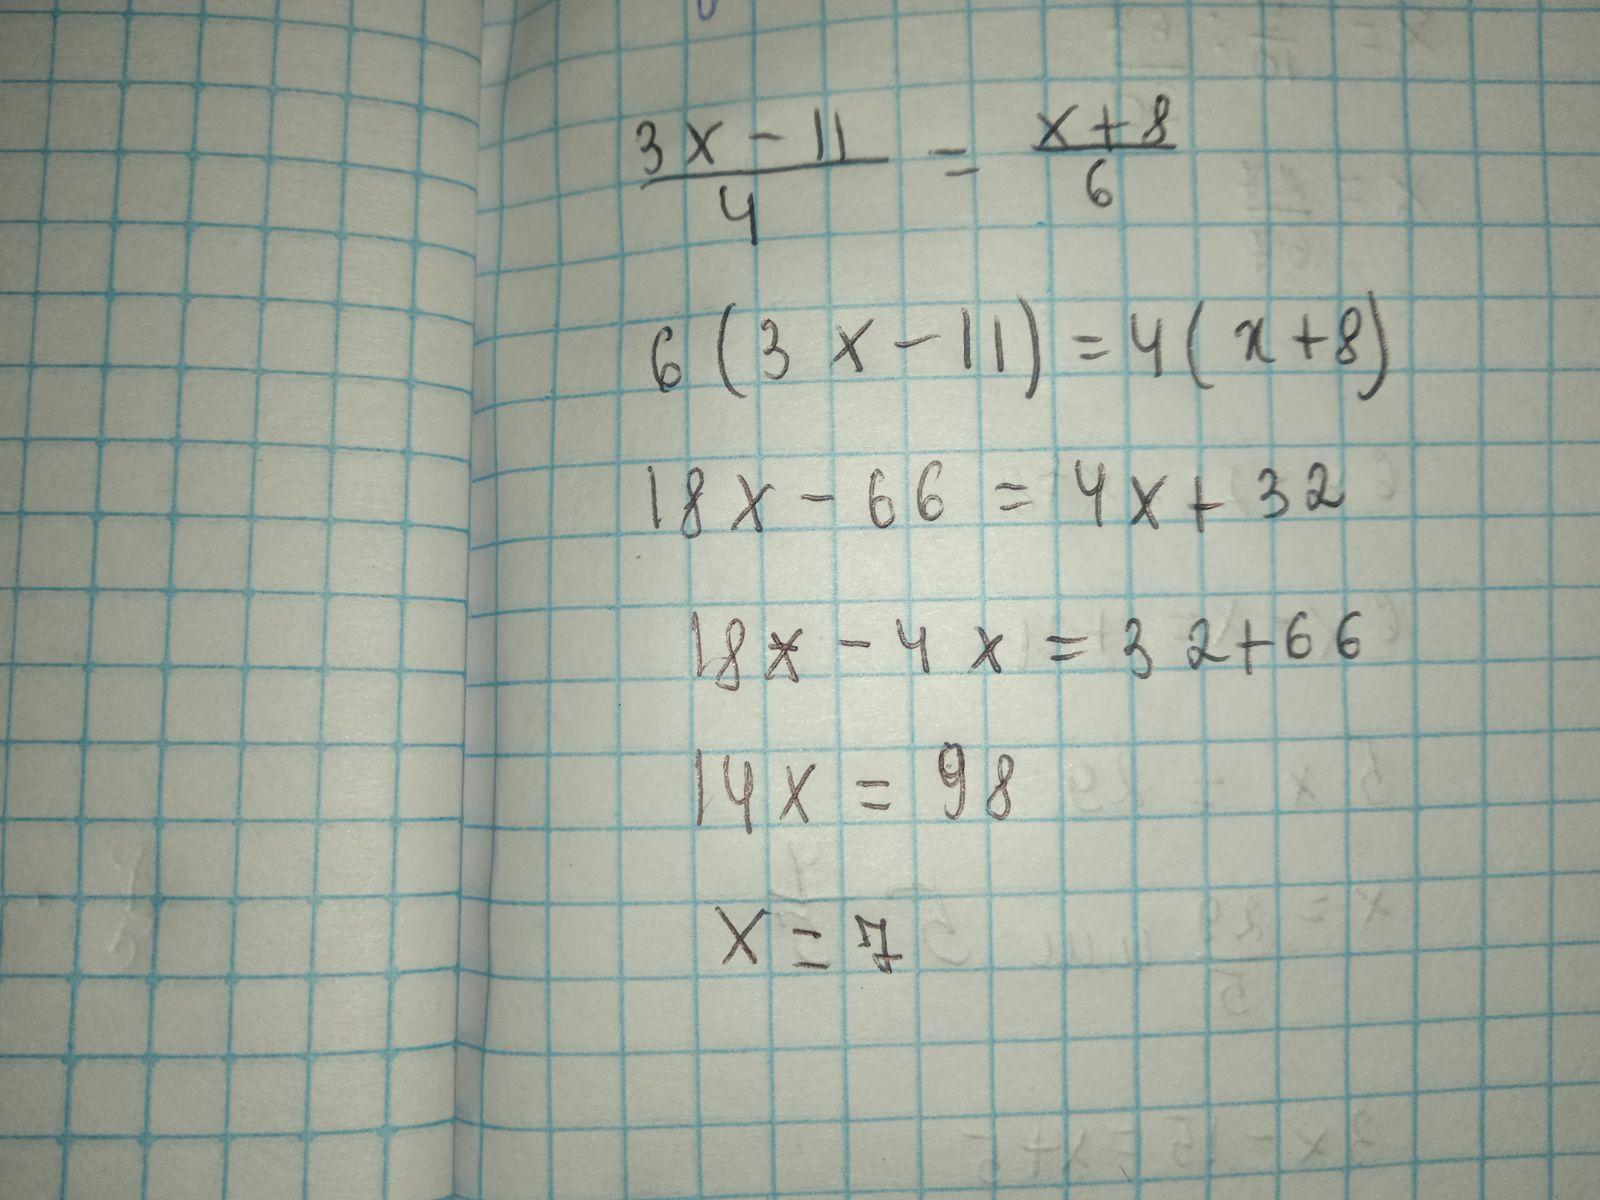 3x - 11 / 4 = x + 8 / 6
6 (3x - 11) = 4 (x + 8)
18x - 66 = 4x + 32
18x - 4x = 32 + 66
14x = 98
x = 7